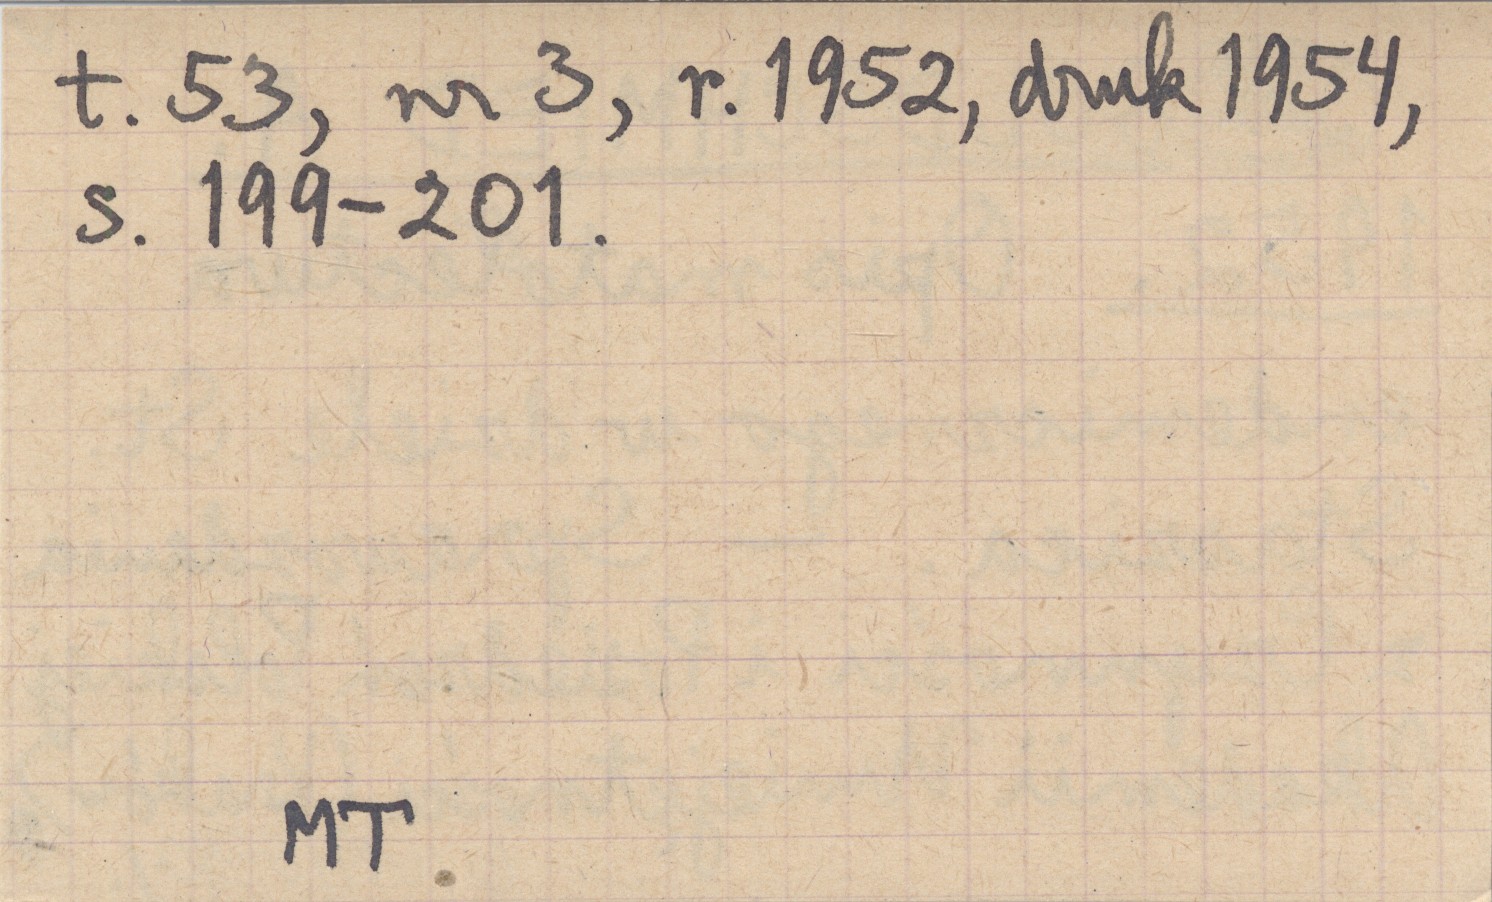 t. 53, nr 3, r. 1952, druk 1954,
s. 199-201.
MT